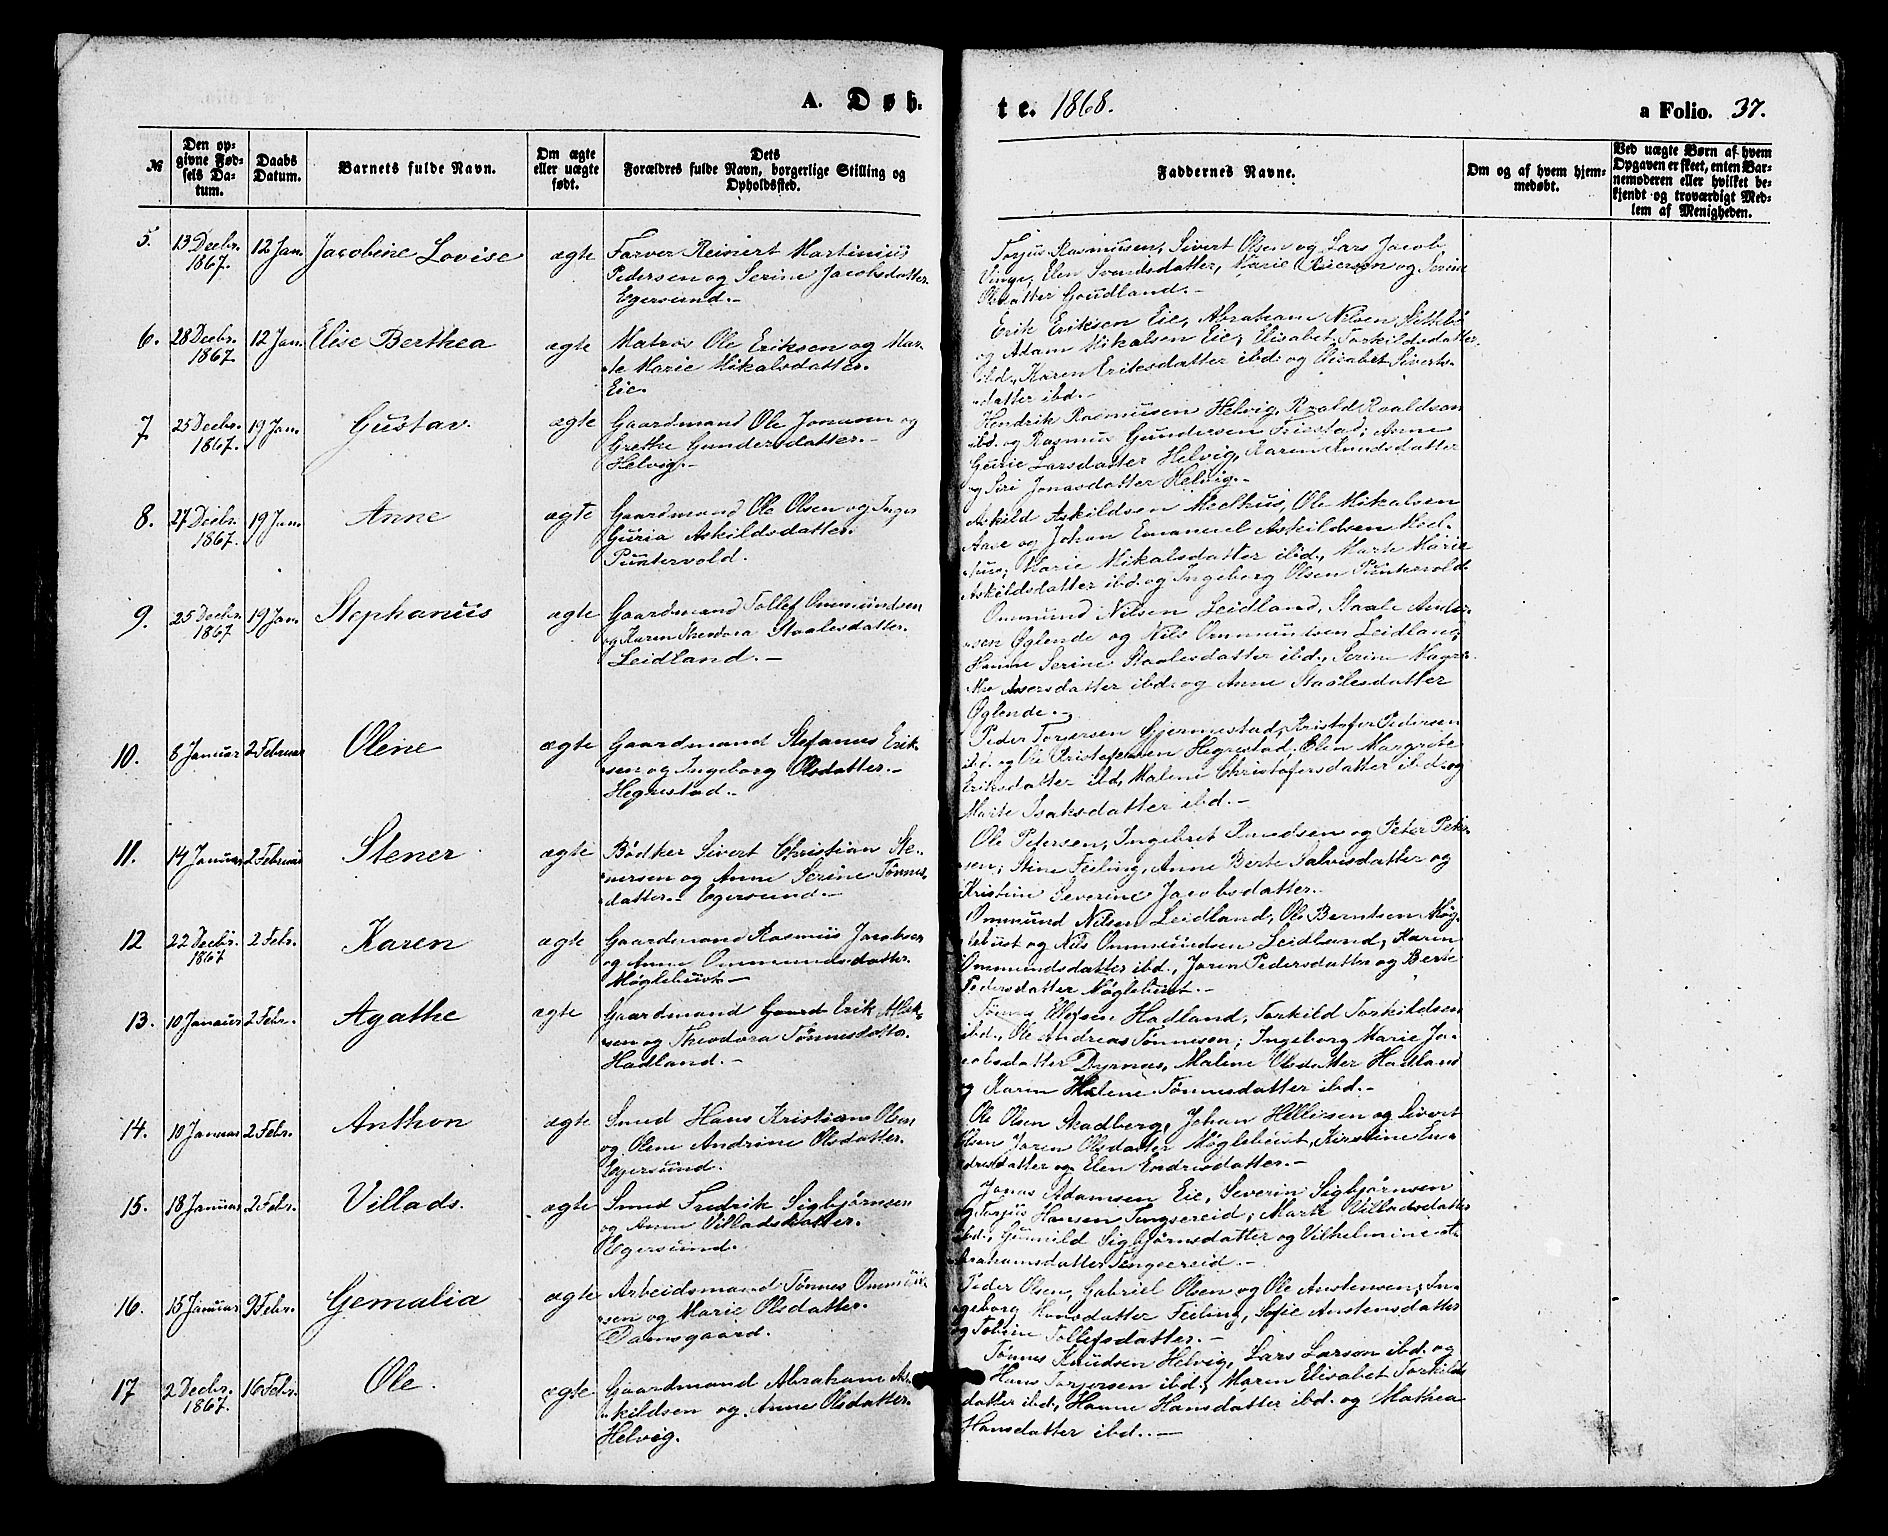 A. Døb-
te. 1868.
a Folio. 37.
№
Den op-
givne Fød-
sels Da-
tum.
Daabs
Datum.
Barnets fulde Navn.
Om ægte
eller uægte
født.
Dets
Forældres fulde Navn, borgerlige Stilling og
Opholdssted.
Faddernes Navne.
Om og af hvem hjem-
medøbt.
Ved uægte Børn af hvem
Opgaven er skeet, enten Bar-
nemoderen eller hvilket be-
kjendt og troværdigt Med-
lem af Menigheden.
5. 13 Decbr. 1867. 12 Jan. Jacobine Lovise ægte
Farver Reinert Martinius
Pedersen og Serine Jacobsdatter
Egersund.-
Torjus Rasmusen, Sivert Olsen og Lars Jacob
Vinge, Elen Svendsdatter, Marie og Serine
Olsdatter Goudland.-
6. 28 Decbr. 1867. 12 Jan. Elise Berthea ægte
Matros Ole Eriksen og Mar-
te Marie Mikalsdatter.
Eie.
Erik Eriksen Eie, Abraham Nilsen
og Adam Mikalsen Eie, Elisabet Torkildsdatter
ibd., Karen Eriksdatter ibd. og Elisabet Siverts-
datter ibd.-
7. 25 Decbr. 1867. 19 Jan. Gustav. ægte
Gaardmand Ole Jonasen og
Grethe Gundersdatter.-
Helvig.-
Hendrik Rasmusen Helvig, Roald Roaldsen
ibd. og Rasmus Gundersen; Anne
Gurie Larsdatter Helvig, Karen Knudsdatter
og Siri Jonasdatter Helvig.-
8. 27 Decbr. 1867. 19 Jan. Anne ægte
Gaardmand Ole Olsen og Inger
Guria Askildsdatter.
Puntervold.
Askild Askildsen Medhus, Ole Mikalsen
Aase og Johan Emanuel Askildsen Med-
huse, Marie Mikalsdatter ibd., Marte Marie
Askildsdatter ibd. og Ingeborg Olsen Puntervold.
9. 25 Decbr. 1867 19 Jan. Stephanus ægte
Gaardmand Tollef Ommundsen
og Karen Theodora Staalesdatter.
Leidland.-
Ommund Nilsen Leidland, Staale Ander-
sen Øglende og Nils Ommundsen Leidland;
Hanne Serine Staalesdatter ibd., Serine Magre-
the Asersdatter ibd. og Anne Staalesdatter
Øglende.-
10. 8 Januar 2 Februar Olene ægte
Gaardmand Stefanus Erik-
sen og Ingeborg Olsdatter.-
Hegrestad.-
Peder Torjersen Gjermestad, Kristofer Pedersen
ibd. og Ole Kristofersen Hegrestad, Elen Margrete
Eriksdatter ibd, Malene Christofersdatter ibd. og
Marte Isaksdatter ibd.-
11. 14 Januar 2 Februar Stener ægte
Bödker Sivert Christian Ste-
nersen og Anne Serine Tønnes-
datter.- Egersund.-
Ole Petersen, Ingebret Knudsen og Peter Peter-
sen; Stine Feiling, Anne Berte Salvesdatter og
Kristine Severine Jacobsdatter.
12 22 Decbr. 1867 2 Febr. Karen ægte
Gaardmand Rasmus Jacobsen
og Anne Ommundsdatter.
Møglebust.-
Ommund Nilsen Leidland, Ole Berntsen Møg-
lebust og Nils Ommundsen Leidland; Karen
Ommundsdatter ibd., Joren Pedersdatter og Berte
Pedersdatter Møglebust.-
13. 10 Januar 2 Febr. Agathe ægte
Gaardmand Gaard Erik Alek-
sen og Theodora Tønnesdatter.
Hadland.-
Tønnes Ellefsen Hadland, Torkild Torkildsen
ibd., Ole Andreas Tønnesen; Ingeborg Marie Ja-
cobsdatter Dyrnes, Malene Olsdatter Hadland
og Karen Malene Tønnesdatter ibd.-
14. 10 Januar 2 Febr. Anthon ægte
Smed Hans Kristian Olsen
og Olene Andrine Olsdatter.
Egersund.
Ole Olsen Skadberg, Johan Hellesen og Sivert
Olsen, Joren Olsdatter Møglebust, Kirstine En-
dresdatter og Elen Endresdatter.-
15. 18 Januar 2 Febr. Villads. ægte
Smed Fredrik Sigbjørnsen
og Anne Villadsdatter.
Egersund.
Jonas Adamsen Eie, Severin Sigbjørnsen
og Torjus Hansen Tengsereid; Marte Villadsdatter
ibd., Gunild Sigbjørnsdatter og Vilhelmine
Abrahamsdatter Tengsereid.-
16. 15 Januar 9 Febr. Gemalia ægte
Arbeidsmand Tønnes Ommun-
sen og Marie Olsdatter.
Damsgaard.
Peder Olsen, Gabriel Olsen og Ole Anstensen; In-
geborg Hansdatter Feiling, Sofie Anstensdatter
og Tollefsdatter.-
17 2 Decbr. 1867. 16 Febr. Ole. ægte
Gaardmand Abraham As-
kildsen og Anne Olsdatter.
Helvig.
Tønnes Knudsen Helvig, Lars Larsen ibd. og
Hans Torjersen ibd.; Maren Elisabet Torkilds-
datter ibd., Hanne Hansdatter ibd. og Mathea
Hansdatter ibd.-